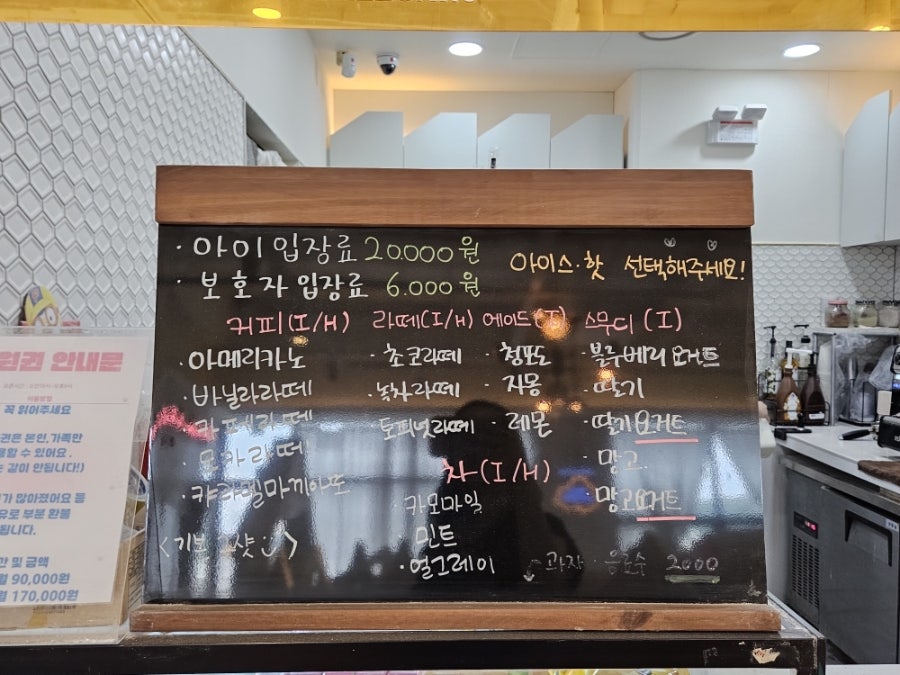 · 아이 입장료 20.000원
· 보호자 입장료 6.000원
아이스·핫 선택해주세요!
커피(I/H)
· 아메리카노
· 바닐라라떼
· 카페라떼
· 모카라떼
· 캬라멜마끼아또
<기본 샷>
라떼(I/H)
· 초코라떼
· 녹차라떼
· 토피넛라떼
에이드(I)
· 청포도
· 자몽
· 레몬
스무디(I)
· 블루베리 요거트
· 딸기
· 딸기요거트
· 망고
· 망고요거트
차(I/H)
· 카모마일
민트
· 얼그레이
과자· 음료수 2000
원권 안내문
꼭 읽어주세요
권은 본인,가족만
용할 수 있어요.
는 같이 안됩니다!)
가 많아졌어요 등
유로 부분 환동
됩니다.
간 및 금액
월 90,000원
월 170,000원